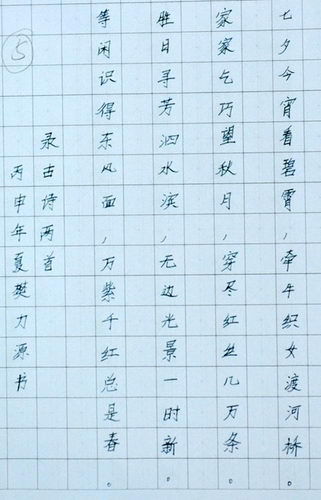 七夕今宵看碧霄，牵牛织女渡河桥。
家家乞巧望秋月，穿尽红丝几万条
胜日寻芳泗水滨，无边光景一时新。
等闲识得东风面，万紫千红总是春。
录古诗两首
丙申年夏樊力源书
5